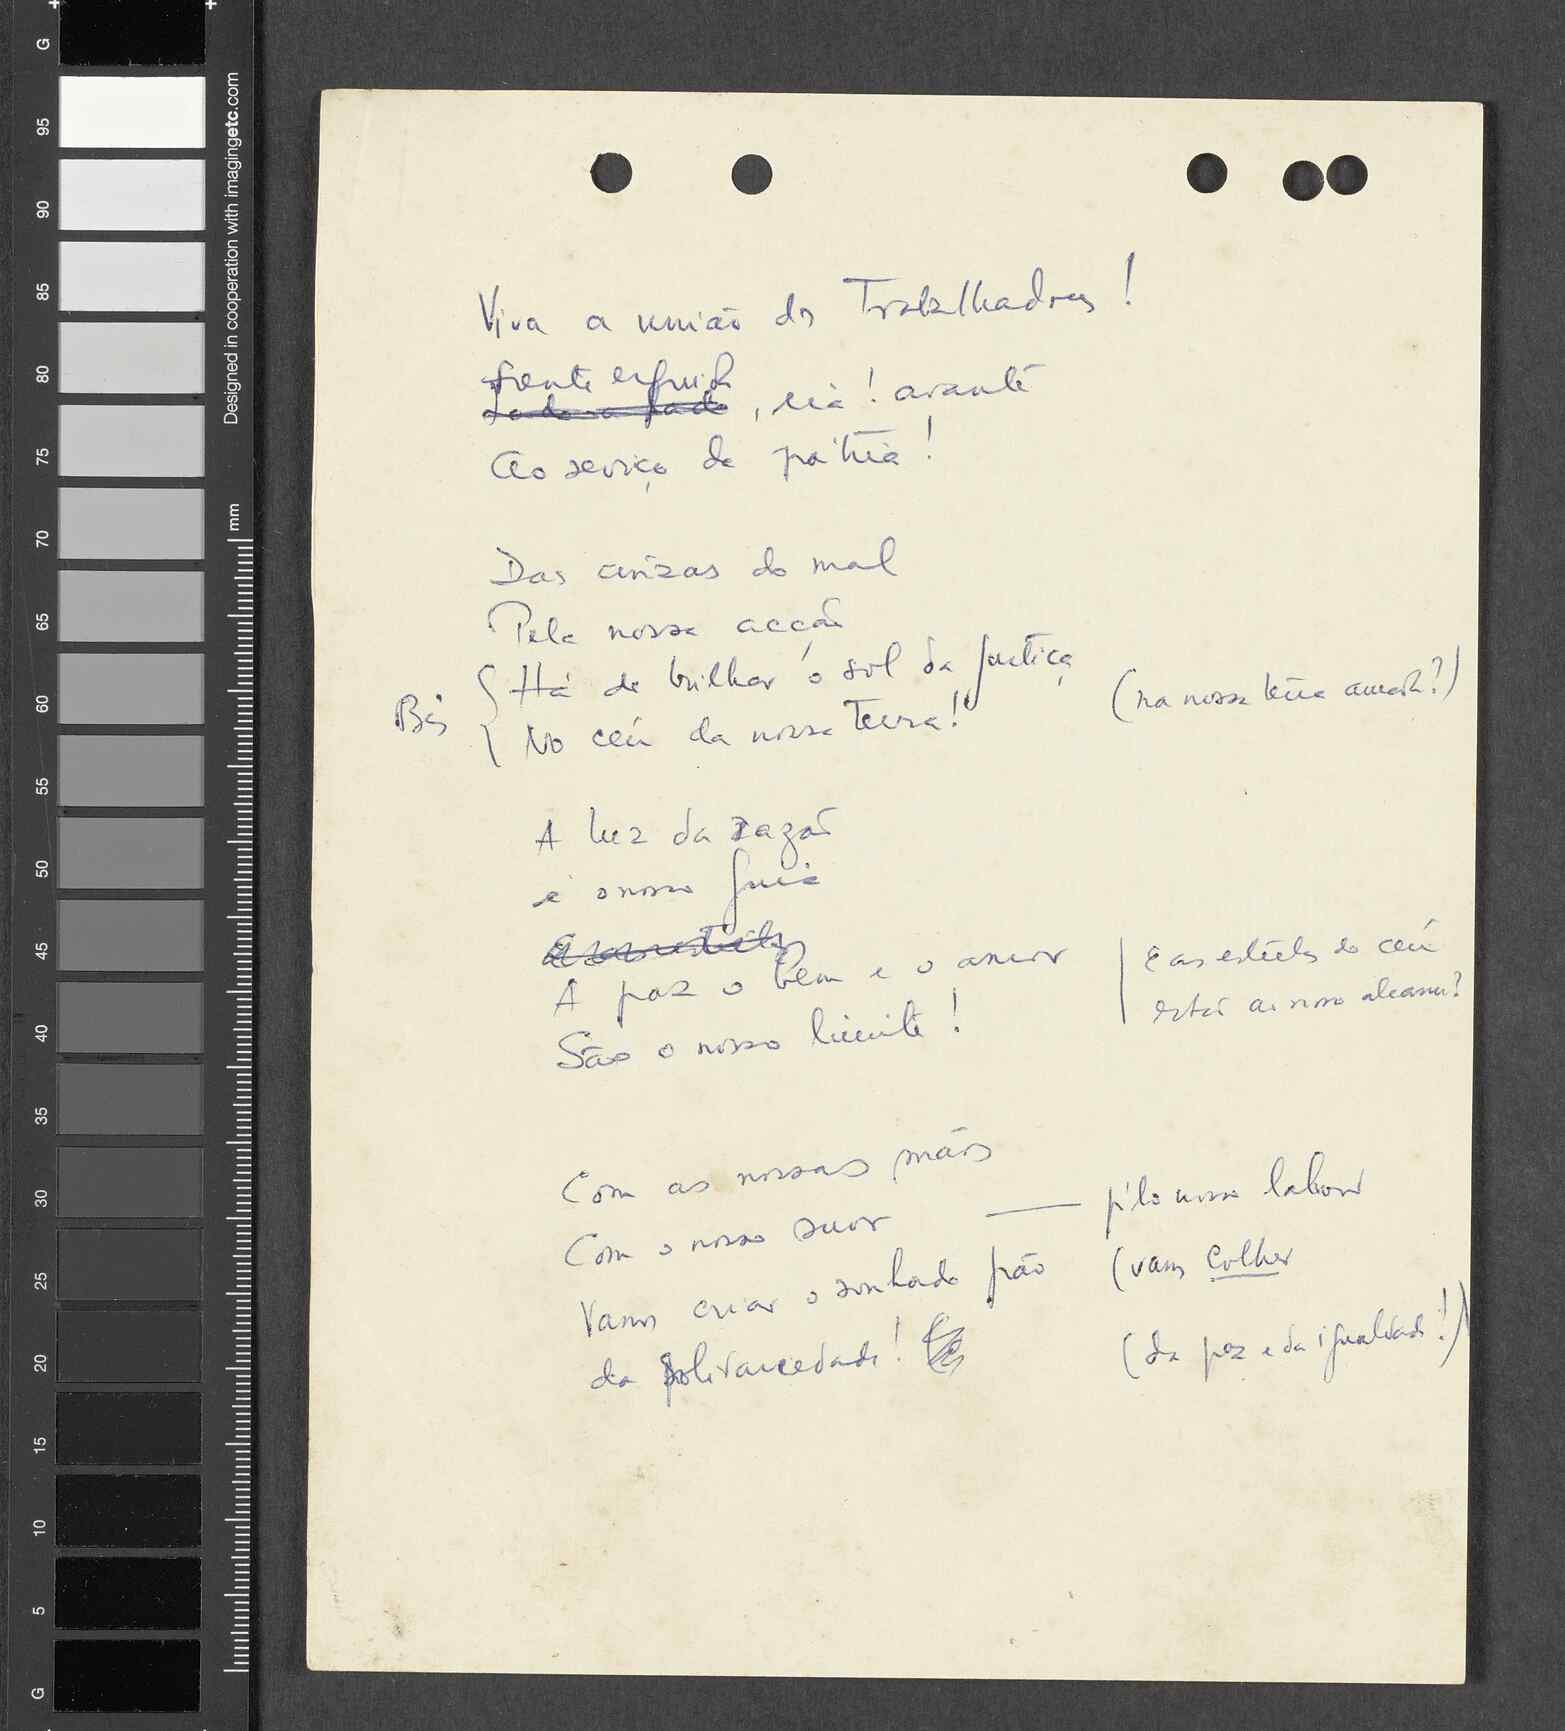 Viva a união dos Trabalhadores!
frente erguida
Lado a lado, eia! avante
Ao serviço da pátria!
Das cinzas do mal
Pela nossa acção
Há de brilhar o sol da justiça
Bis
No céu da nossa Terra!
(na nossa terra amada?)
A luz da razão
é o nosso guia
A paz o bem e o amor
São o nosso limite!
E as estrelas do céu
estão ao nosso alcance?
Com as nossas mãos
Com o nosso suor
pelo nosso labor
Vamos criar o sonhado pão
(vamos colher
da solidariedade!
(da paz e da igualdade!)
G
95
90
85
80
75
70
65
60
55
50
45
40
35
30
25
20
15
10
5
G
Designed in cooperation with imagingetc.com
mm